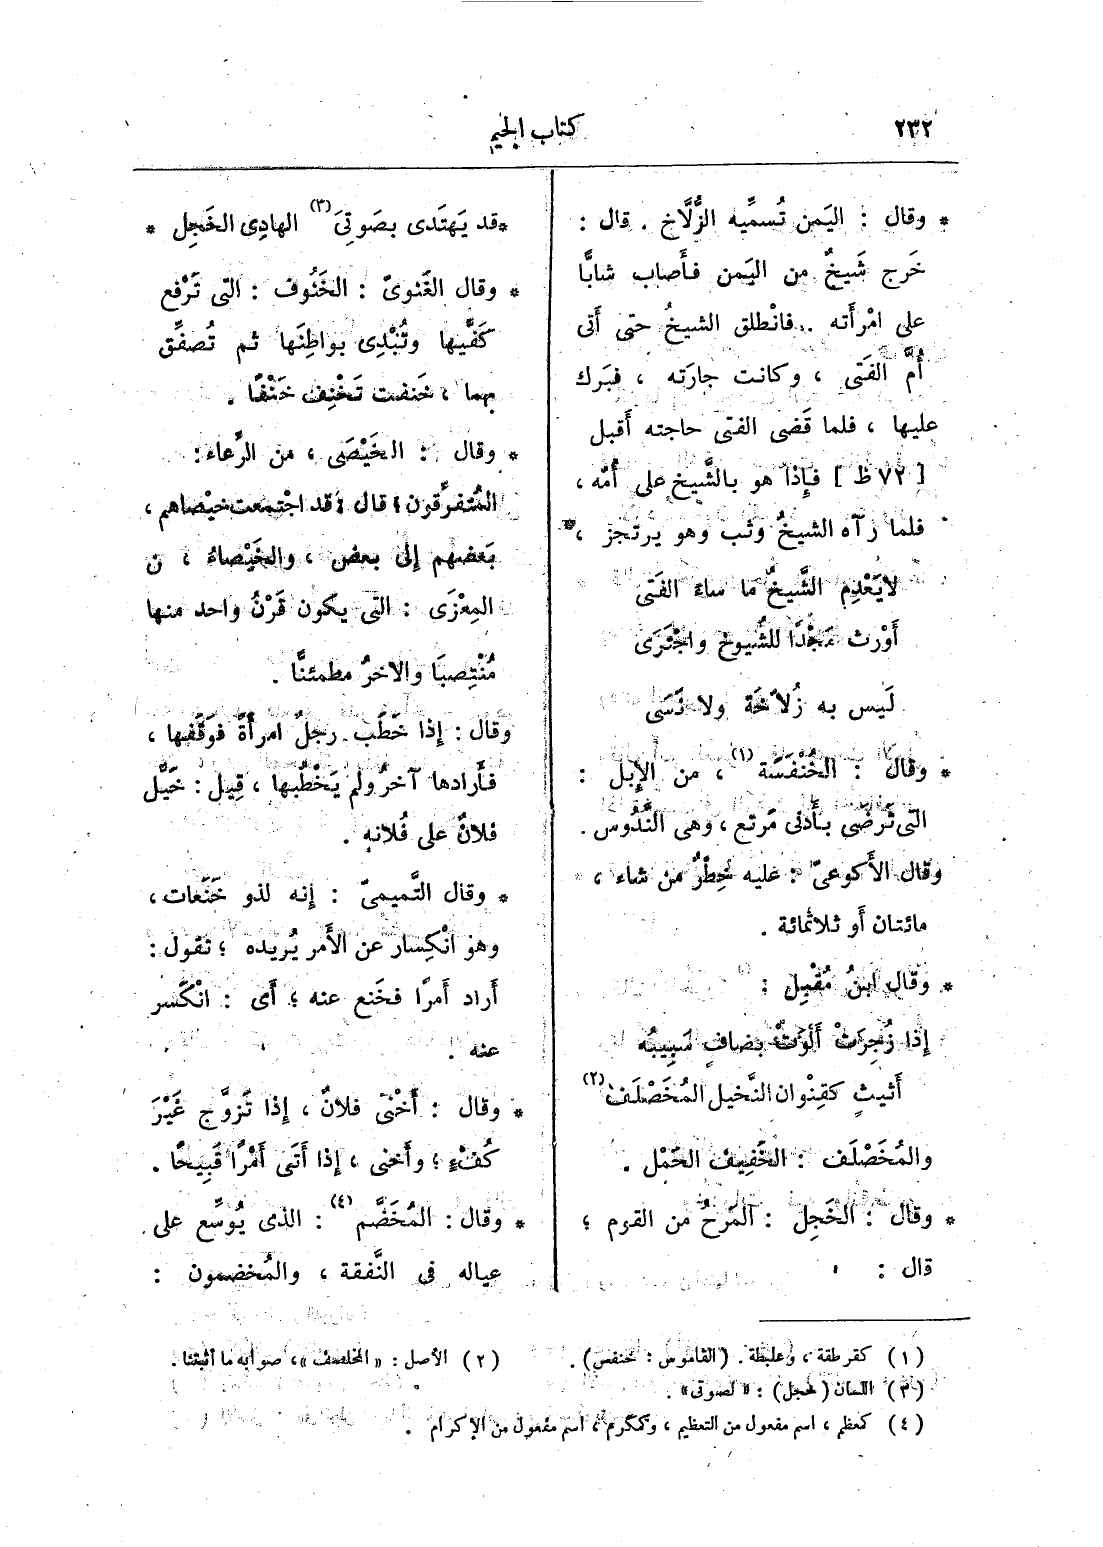 ٢٣٢
كتاب الجيم
* وقال : اليَمن تُسمِّيه الزُّلَّاخ . قال :
خَرج شَيخٌ من اليَمن فأَصاب شابًّا
على امْرأَته .. فانْطلق الشيخُ حتى أَتى
أُمَّ الفَتى ، وكانت جارَته ، فبَرك
عليها ، فلما قَضى الفتى حاجته أَقبل
[ ٧٢ ظ ] فإِذا هو بالشَّيخ على أُمّه ،
فلما رآه الشيخُ وثب وهو يرتجز ،
لايَعْدِم الشَّيخُ ما ساءَ الفَتى
أَوْرث مَجْدًا للشُّيوخ واجْتَرَى
لَيس به زُلَّاخَة ولا نَسَى
* وقال : الخُنْفَسَّة (١) ، من الإِبل :
التى تَرضَى بأَدنى مَرتع ، وهى النَّدُوس .
وقال الأَكوعىّ : عليه خِطْرٌ من شاء ،
مائتان أَو ثلاثمائة .
* وقال ابنُ مُقْبِل :
إذا زُجِرَتْ أَلوَتْ بضافٍ سَبِيبُه
أَثيثٍ كقِنْوان النَّخيل المُخَصْلَف (٢)
والمُخَصْلَف : الخَفِيف الحَمْل .
* وقال : الخَجِل : المَرحُ من القوم ؛
قال :
* قد يَهتَدى بصَوتِىَ (٣) الهادِى الخَجِل *
* وقال الغَنوىّ : الخَنُوف : التى تَرْفع
كَفَّيها وتُبْدِى بواطِنَها ثم تُصفِّق
بهما ، خَنفت تَخْنِف خَنْفًا .
* وقال : الخَيْصَى ، من الرِّعاء :
المُتفرِّقون ؛ قال : قد اجْتمعت خيْصاهم ،
بَعضهم إلى بعض ، والخَيْصاءُ ، ن
المِعْزَى : التى يكون قَرْنٌ واحد منها
مُنْتِصبًا والآخرُ مطمئنًّا .
وقال : إذا خَطَب رجلٌ امرأةً فوَقَفها ،
فأَرادها آخرُ ولم يَخْطُبها ، قِيل : خَيَّل
فلانٌ على فُلانه .
* وقال التَّميمىّ : إنه لذو خَنَعات ،
وهو انْكِسار عن الأَمر يُريده ؛ تقول :
أَراد أَمرًا فخَنع عنه ؛ أَى : انْكَسر
عنه .
* وقال : أَخْنَى فلانٌ ، إذا تَزوَّج غَيْرَ
كُفْءٍ ؛ وأخنى ، إذا أَتَى أَمْرًا قَبِيحًا .
* وقال : المُخَضَّم (٤) : الذى يُوسِّع على
عياله فى النَّفقة ، والمُخضمون :
(١) كقرطقة ، وعلبطة . (القاموس : خنفس) .
(٢) الأصل : « المخلصف » ، صوابه ما أثبتنا .
(٣) اللسان (خجل) : « لصوتى » .
(٤) كعظم ، اسم مفعول من التعظيم ، وكمكرم ، اسم مفعول من الإكرام .